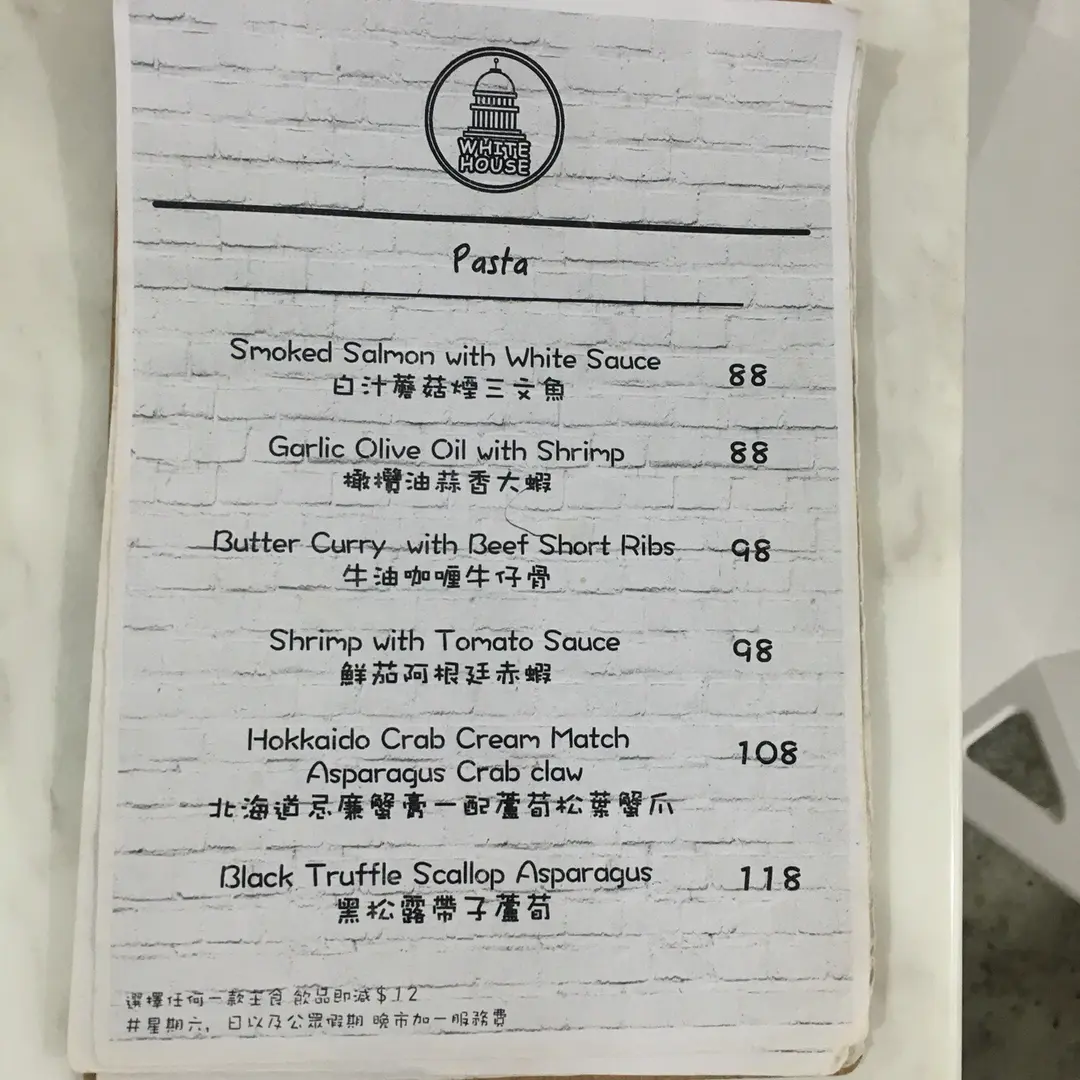 WHITE
HOUSE
Pasta
Smoked Salmon with White Sauce 88
白汁蘑菇煙三文魚
Garlic Olive Oil with Shrimp 88
橄欖油蒜香大蝦
Butter Curry with Beef Short Ribs 98
牛油咖喱牛仔骨
Shrimp with Tomato Sauce 98
鮮茄阿根廷赤蝦
Hokkaido Crab Cream Match 108
Asparagus Crab claw
北海道忌廉蟹膏一配蘆荀松葉蟹爪
Black Truffle Scallop Asparagus 118
黑松露帶子蘆荀
選擇任何一款主食 飲品即減$12
#星期六, 日以及公眾假期 晚市加一服務費